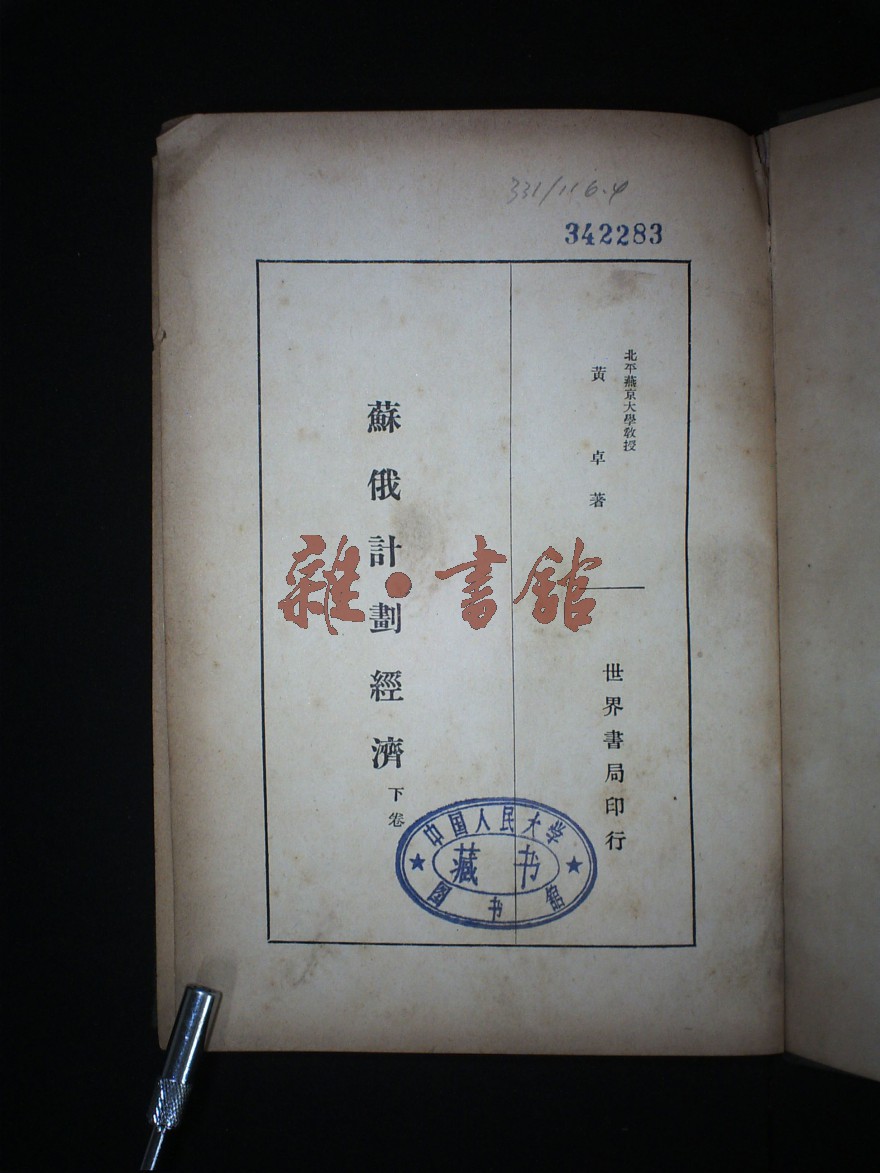 331/116.4
342283
北平燕京大學教授
黃卓著
世界書局印行
蘇俄計劃經濟
下卷
雜·書館
中国人民大学
藏书
图书馆